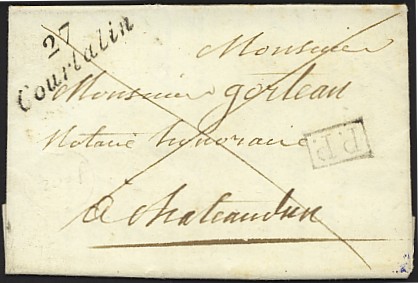 27
Courtalin
Monsieur
Monsieur gorteau
Notaire honoraire
P.P.
à chateaudun